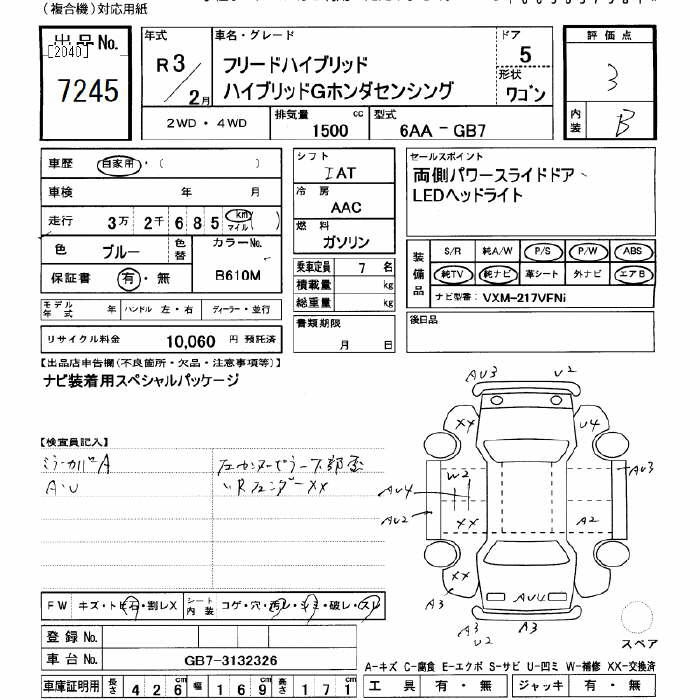 (複合機)対応用紙
出品No.
[2040]
7245
年式
R3/2月
車名・グレード
フリードハイブリッド
ハイブリッドGホンダセンシング
ドア
5
形状
ワゴン
2WD・4WD
排気量
1500 cc
型式
6AA－GB7
評価点
3
内装
B
車歴 自家用・( )
車検 年 月
走行 3万 2千 6 8 5 km マイル( )
色 ブルー
色替
カラーNo.
B610M
保証書 有・無
モデル年式 年 ハンドル 左・右 ディーラー・並行
リサイクル料金 10,060 円 預託済
シフト
IAT
冷房
AAC
燃料
ガソリン
乗車定員 7 名
積載量 kg
総重量 kg
書類期限
月 日
セールスポイント
両側パワースライドドア
LEDヘッドライト
装備品
S/R 純A/W P/S P/W ABS
純TV 純ナビ 革シート 外ナビ エアB
ナビ型番: VXM-217VFNi
後日品
【出品店申告欄(不良箇所・欠品・注意事項等)】
ナビ装着用スペシャルパッケージ
【検査員記入】
ミラーカバーA
A・U
〃Rフェンダー××
FW キズ・トビ石・割レX シート内装 コゲ・穴・汚レ・シミ・破レ・スレ
登録No.
車台No. GB7-3132326
車庫証明用 長さ 426 cm 幅 169 cm 高さ 171 cm
AU3 U2
XX U4
W2 AU3
AU4
AU2 XX A2
XX AU4
A3 A3
A3
U2
スペア
A-キズ C-腐食 E-エクボ S-サビ U-凹ミ W-補修 XX-交換済
工具 有・無 ジャッキ 有・無